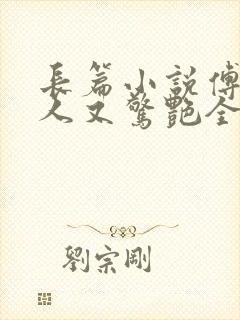 長篇小説傅
人又驚艷全
劉宗剛